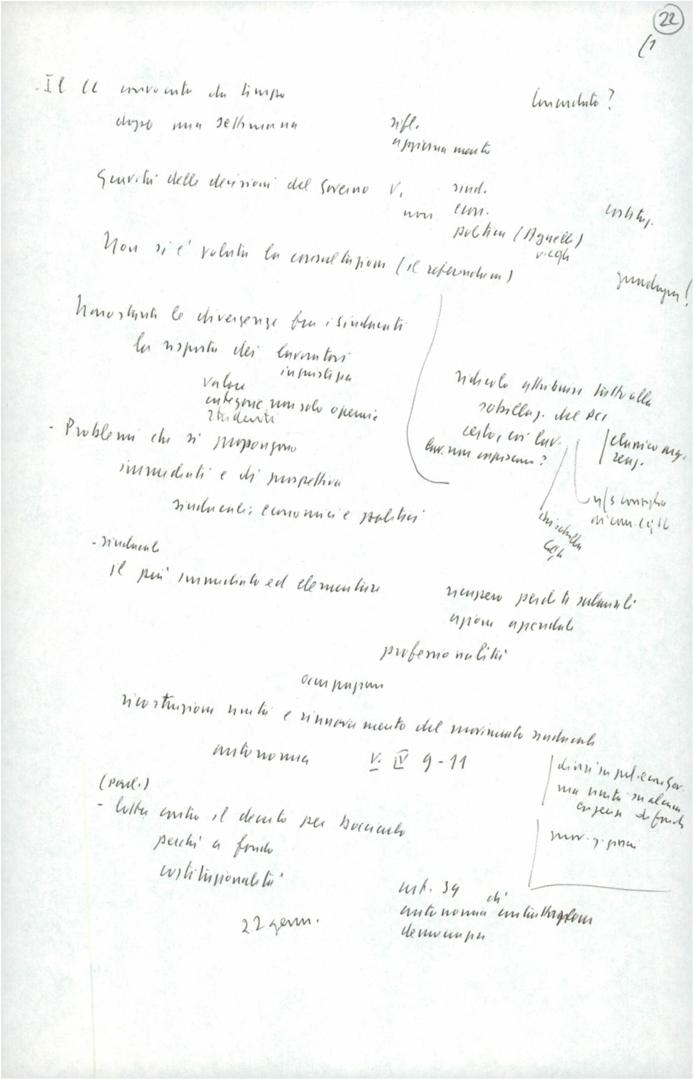 22
(1
- Il CC convocato da tempo
immediato?
dopo una settimana
rifl.
aggiornamento
Gravità delle decisioni del governo v. sind.
non econ. costituz.
politica (Agnelli)
v. cgil
Non si è voluta la consultazione (il referendum)
Nonostante le divergenze fra i sindacati
la risposta dei lavoratori
ingiustizia
valore
categorie non solo operaie
studenti
ridicolo attribuire tutto alla
sobillaz. del PCI
certo, così lav.
lav. non capiscono?
n/s consiglio
di com. cgil
- Problemi che si propongono
immediati e di prospettiva
sindacali, economici e politici
- sindacali
il più immediato ed elementare
recupero perdite salariali
azione aziendale
professionalità
occupazione
ricostruzione unità e rinnovamento del movimento sindacale
autonomia v. IV 9-11
divisi su pol. econ. gov.
ma unità su alcune
esigenze di fondo
(parl.)
- lotta contro il decreto per bocciarlo
perché a fondo
costituzionalità
22 genn.
art. 39
autonomia di contrattazione
democrazia